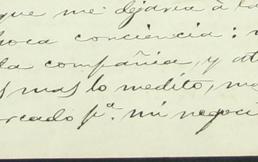 que me dejaria á la
poca conciencia:
la compañia, y at
mas lo medito, ma
ercado pª. mi negoci